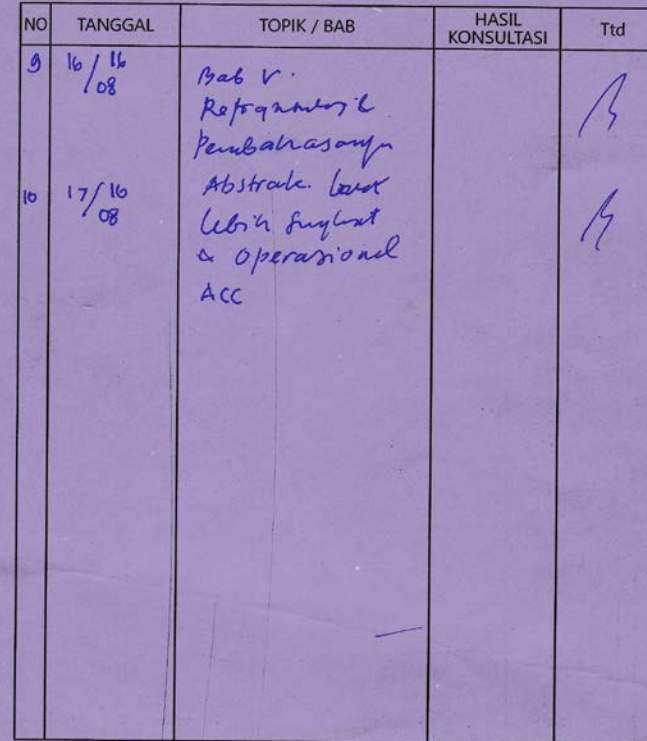 NO TANGGAL TOPIK / BAB HASIL KONSULTASI Ttd
9 16/16 08 Bab V.
Pembahasannya
10 17/16 08 Abstrak. buat
lebih singkat
& operasional
ACC